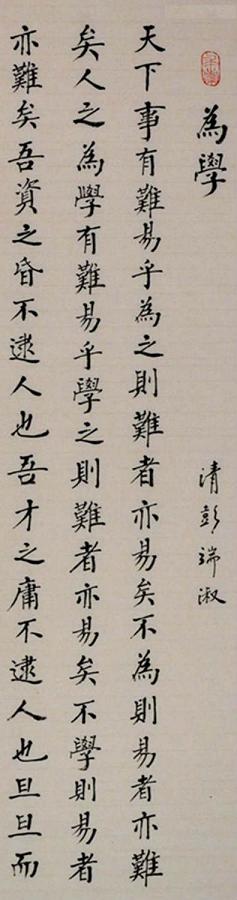 為學
清彭端淑
天下事有難易乎為之則難者亦易矣不為則易者亦難
矣人之為學有難易乎學之則難者亦易矣不學則易者
亦難矣吾資之昏不逮人也吾才之庸不逮人也旦旦而